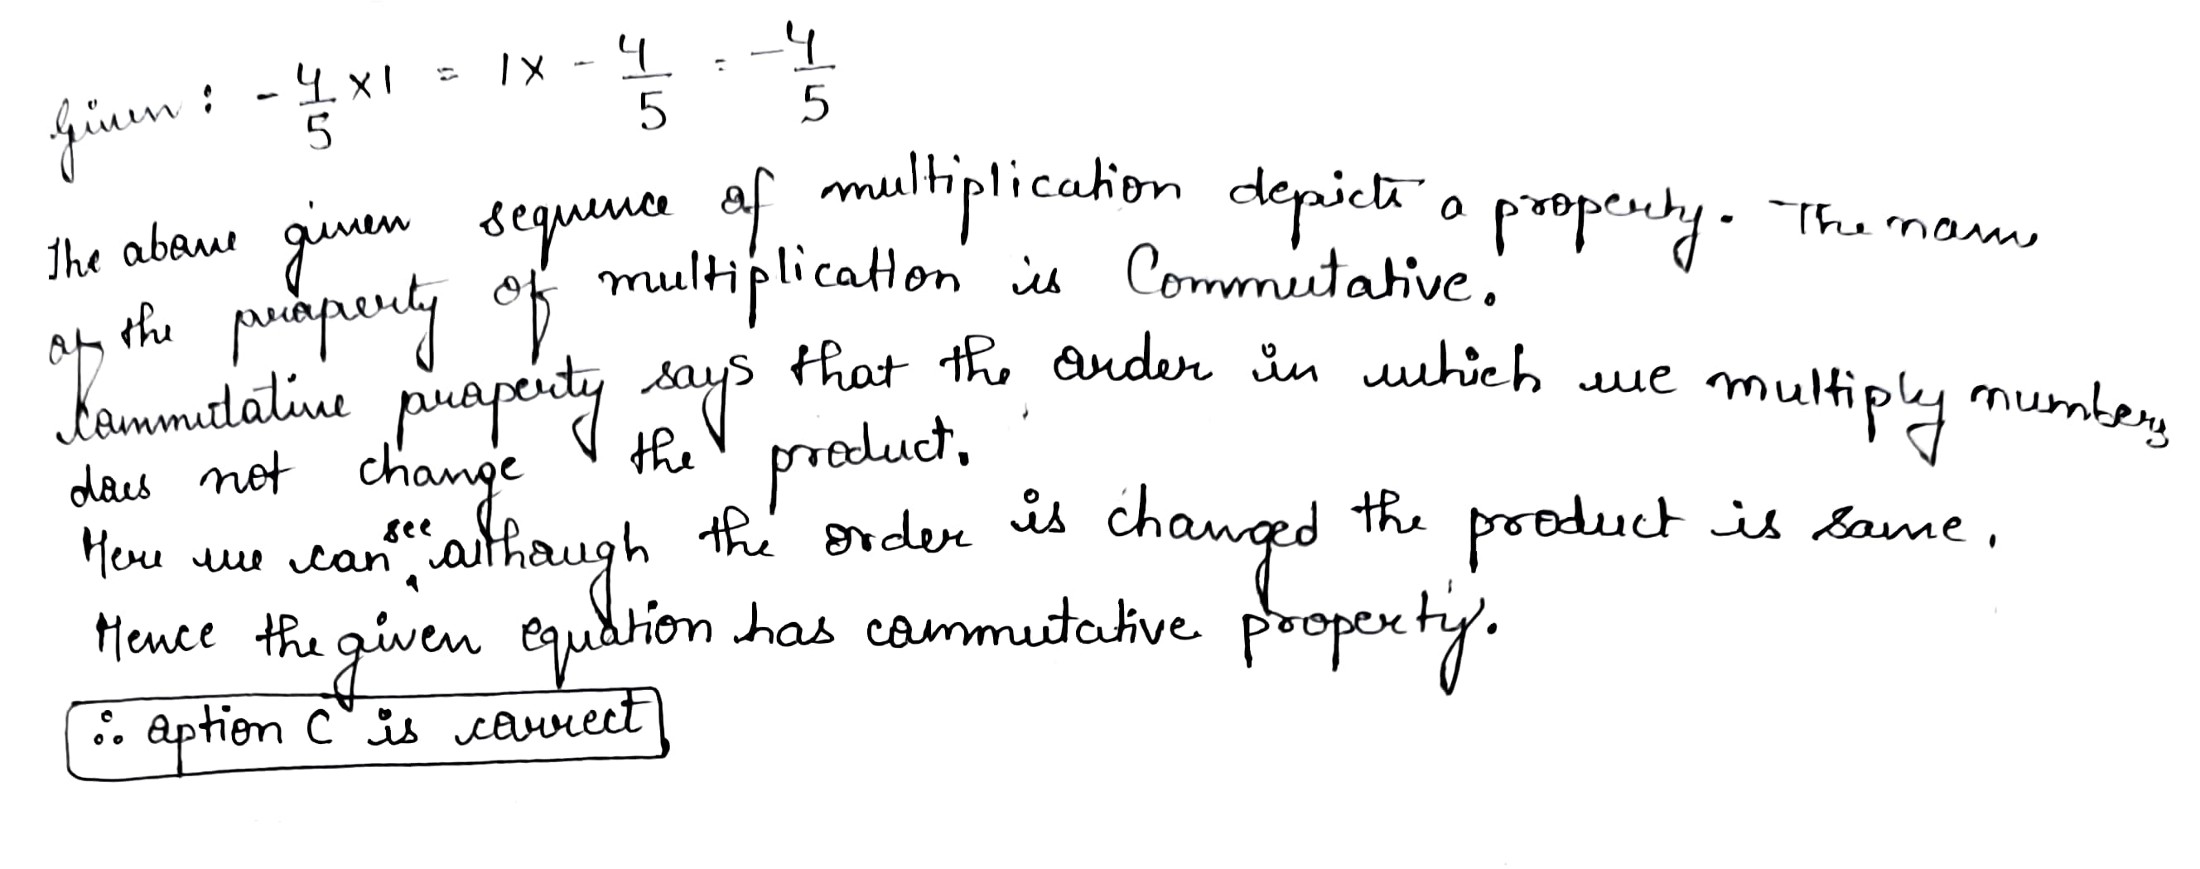 Given : - 4/5 × 1 = 1 × - 4/5 = -4/5
The above given sequence of multiplication depicts a property. The name
of the property of multiplication is Commutative.
Commutative property says that the order in which we multiply numbers
does not change the product.
Here we can see although the order is changed the product is same.
Hence the given equation has commutative property.
∴ option C is correct